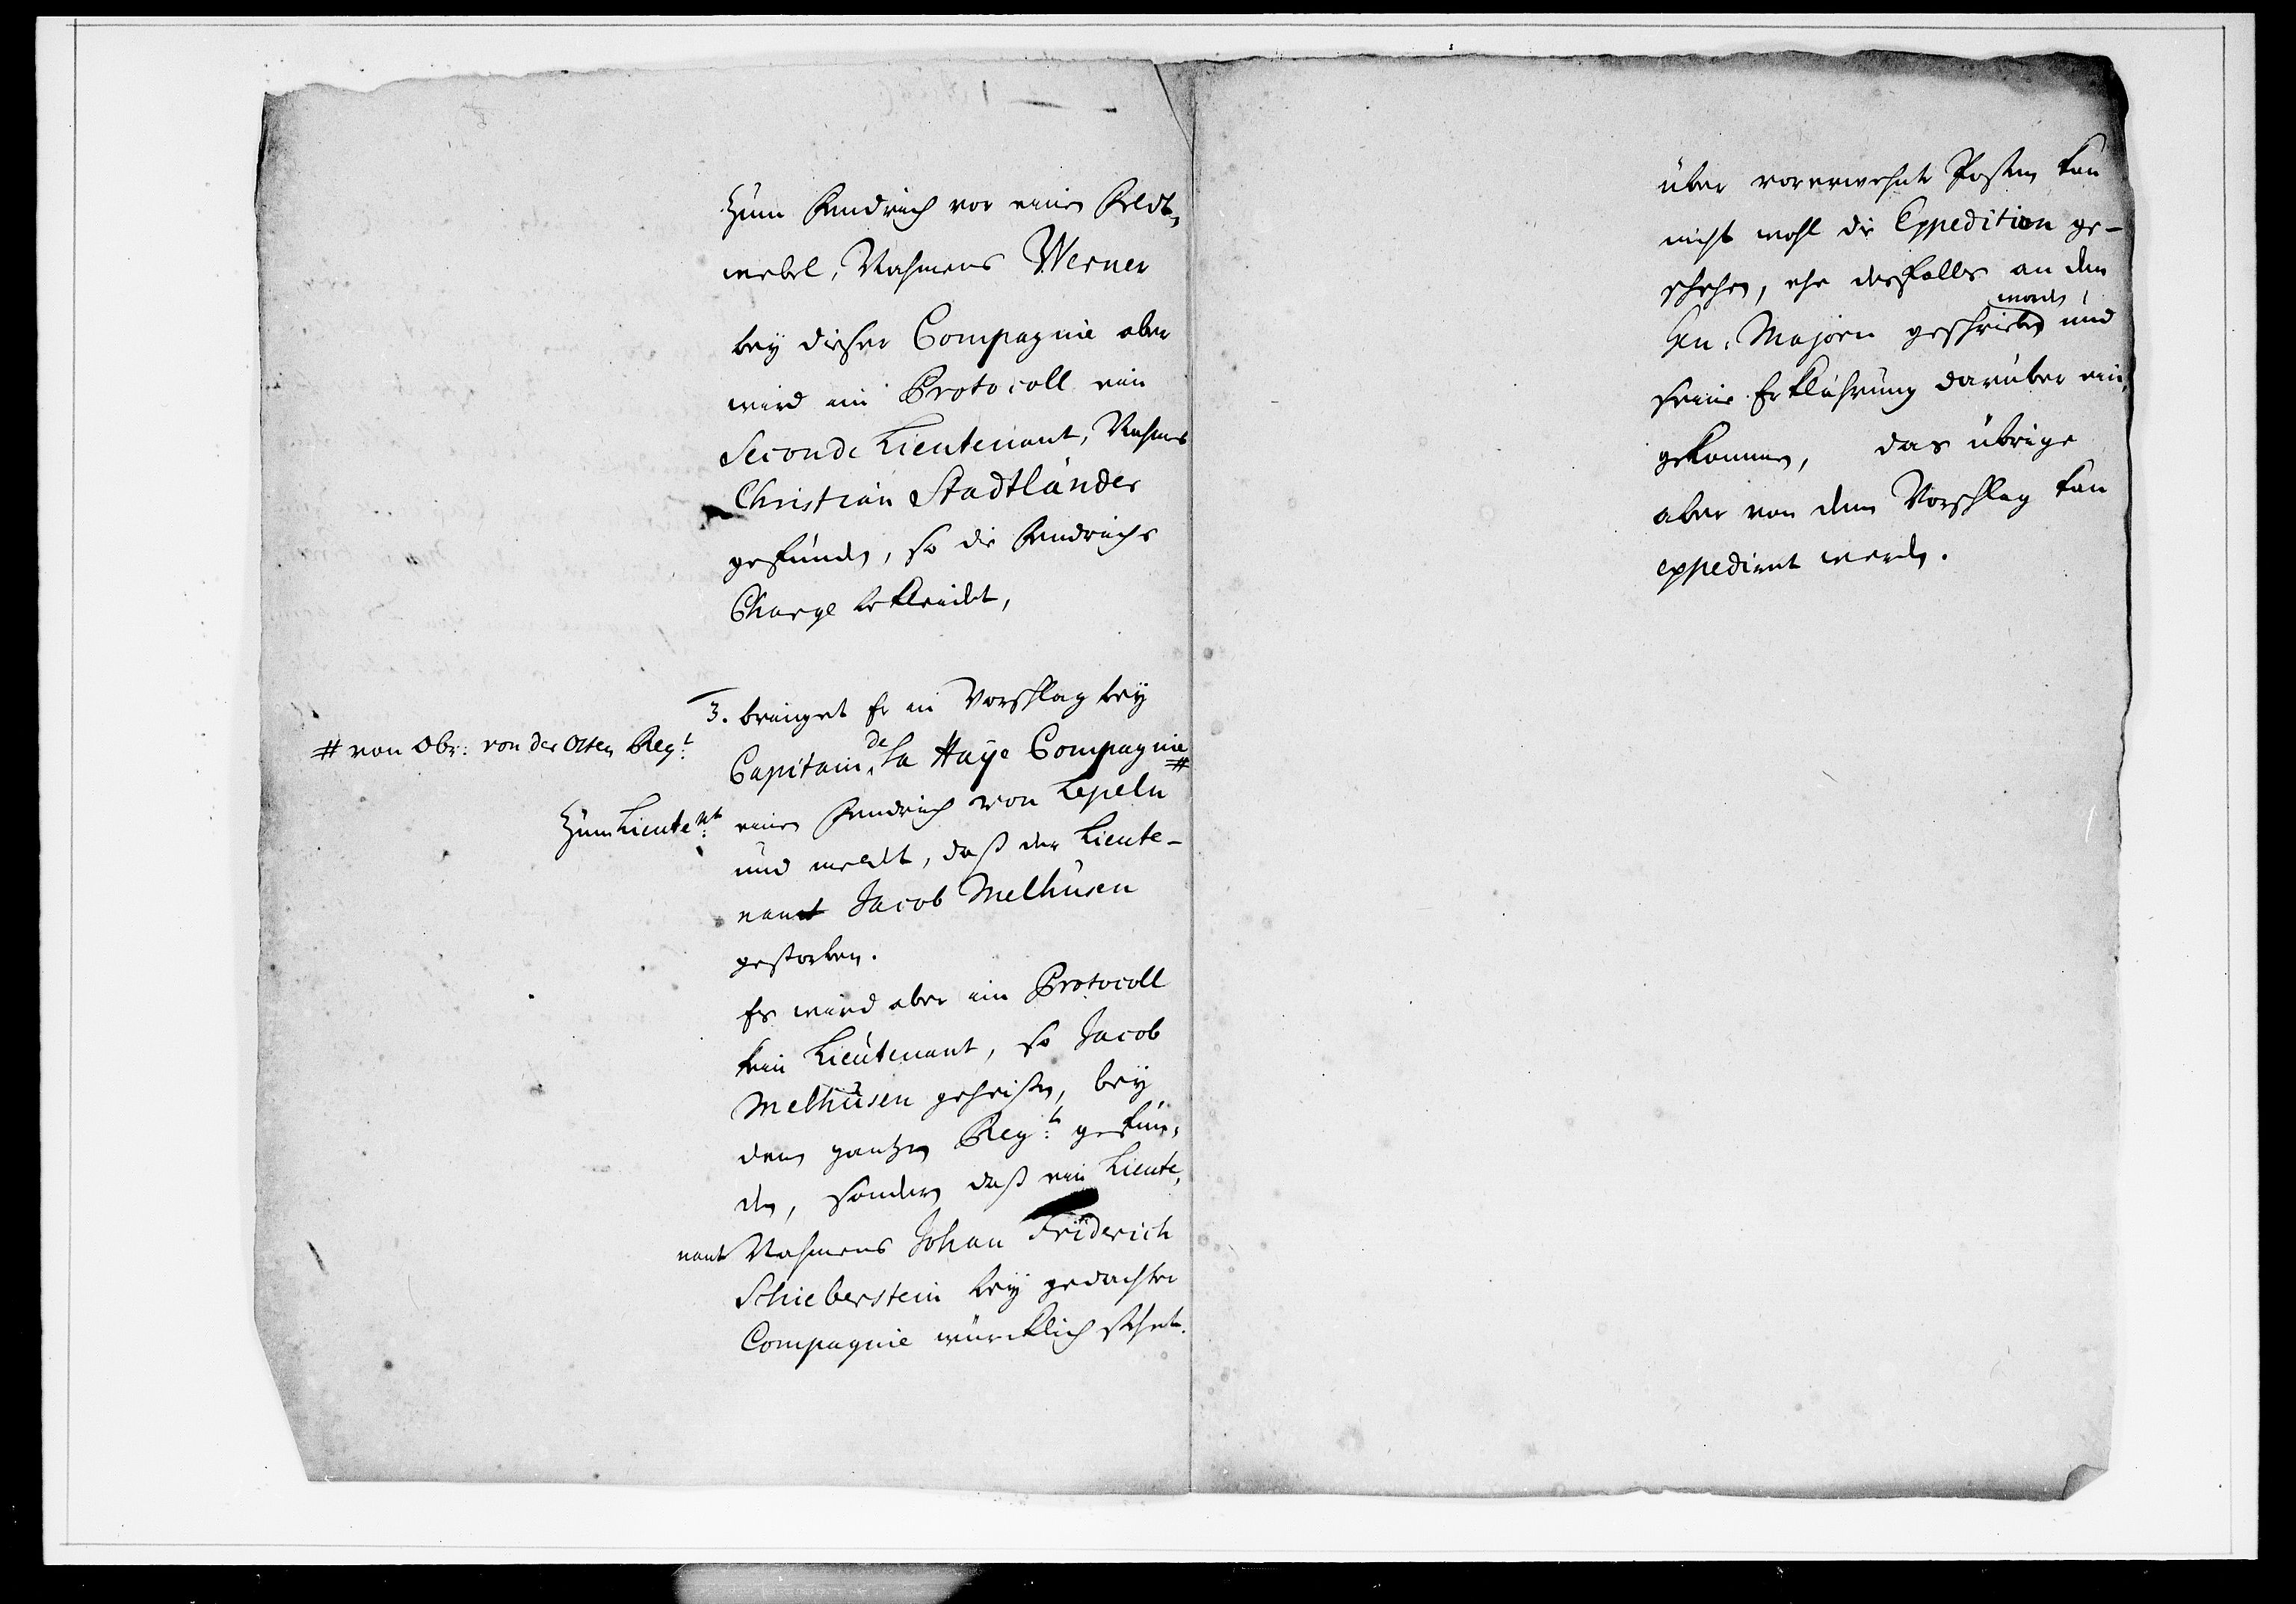 Zum Fendrich vor einen Feldt„
webel, Nahmens Werner
bey dieser Compagnie aber
wird im Protocoll ein
Seconde Lieutenant, Nahmens
Christian Stadtländer
gefunden, so die Fendrichs
Charge bekleidet,
3. bringet Er in Vorschlag bey
Capitain de la Haÿe Compagnie #
# von Obr: von der Osten Regt:
einen Fendrich von Lepeln
Zum Lieutent:
und meldet, daß der Lieute-
nant Jacob Melhusen
gestorben.
Es wird aber im Protocoll
kein Lieutenant, so Jacob
Melhusen geheißen, bey
dem gantzen Regt: gefun„
den, sondern daß ein Lieute„
nant Nahmens Johan Friderich
Schieberstein bey gedachter
Compagnie würcklich stehet.
über vorerwehnte Posten kan
nicht wohl die Expedition ge-
schehen, ehe desfalls an den
Gen: Majorn geschrieben worden, und
seine Erklährung darüber ein„
gekommen, das übrige
aber von dem Vorschlag kan
expediret werden.